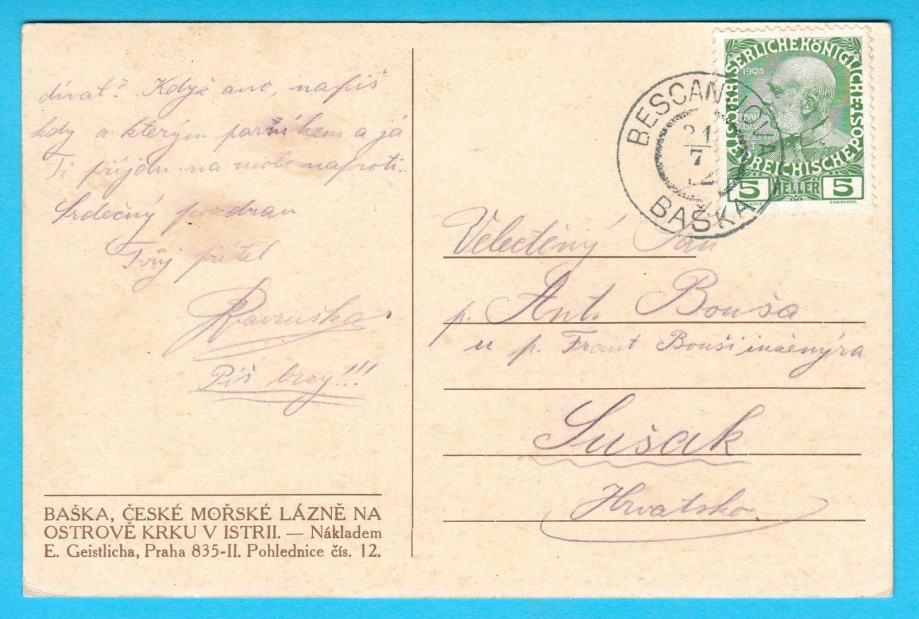 dívat? Když ano, napiš
kdy a kterým parníkem a já
Ti přijdu na molo naproti.
Srdečný pozdrav
Tvůj přítel
Piš brzy!!!
BAŠKA, ČESKÉ MOŘSKÉ LÁZNĚ NA
OSTROVĚ KRKU V ISTRII. — Nákladem
E. Geistlicha, Praha 835-II. Pohlednice čís. 12.
BESCANUOVA
21
7
12
BAŠKA
KAISERLICHE KÖNIGLICHE
ÖSTERREICHISCHE POST
1908
5 HELLER 5
Velectěný Pan
p. Ant. Bouša
u p. Frant Bouši inženýra
Sušak
Hrvatsko.